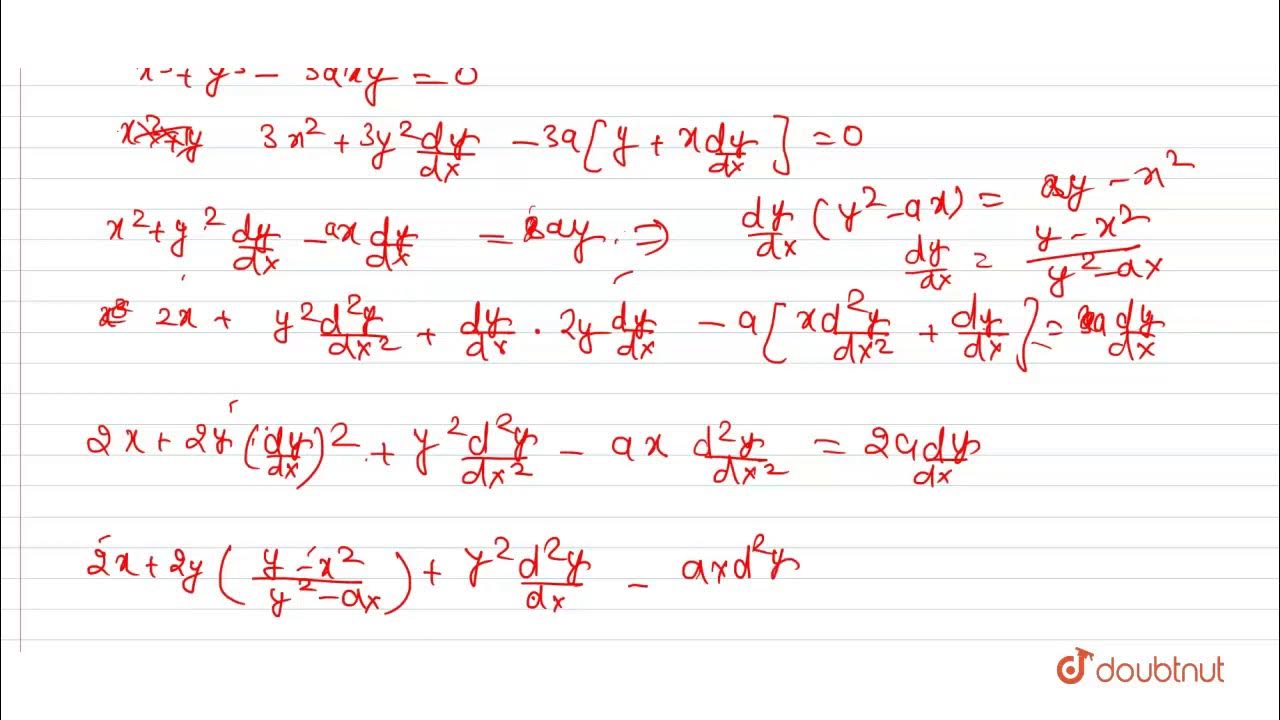 x³ + y³ - 3axy = 0
3x² + 3y² dy/dx - 3a[y + x dy/dx] = 0
x² + y² dy/dx - ax dy/dx = ay ⇒ dy/dx (y² - ax) = ay - x²
dy/dx = y - x²/y² - ax
2x + y² d²y/dx² + dy/dx · 2y dy/dx - a[x d²y/dx² + dy/dx] = a dy/dx
2x + 2y (dy/dx)² + y² d²y/dx² - ax d²y/dx² = 2a dy/dx
2x + 2y (y - x²/y² - ax) + y² d²y/dx - axd²y
doubtnut